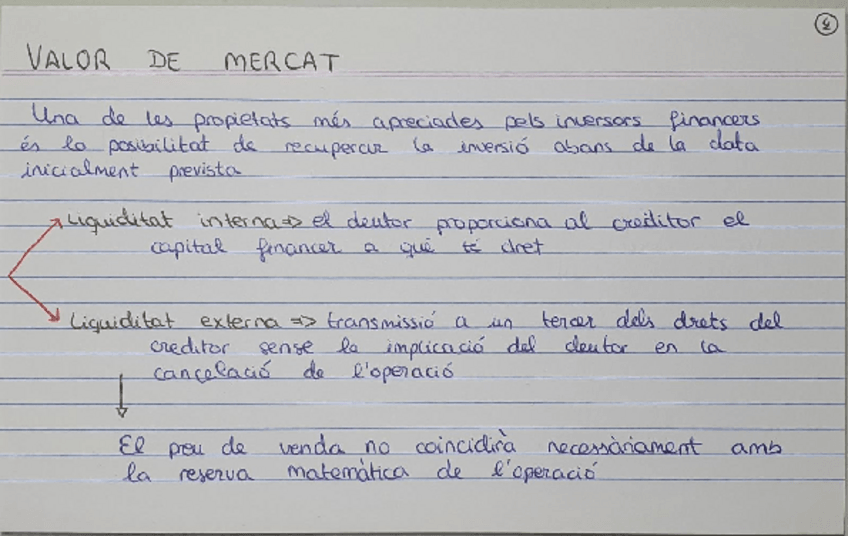 4
VALOR DE MERCAT
Una de les propietats més apreciades pels inversors financers
és la posibilitat de recuperar la inversió abans de la data
inicialment prevista
Liquiditat interna => el deutor proporciona al creditor el
capital financer a què té dret
Liquiditat externa => transmissió a un tercer dels drets del
creditor sense la implicació del deutor en la
cancelació de l'operació
El preu de venda no coincidirà necessàriament amb
la reserva matemàtica de l'operació